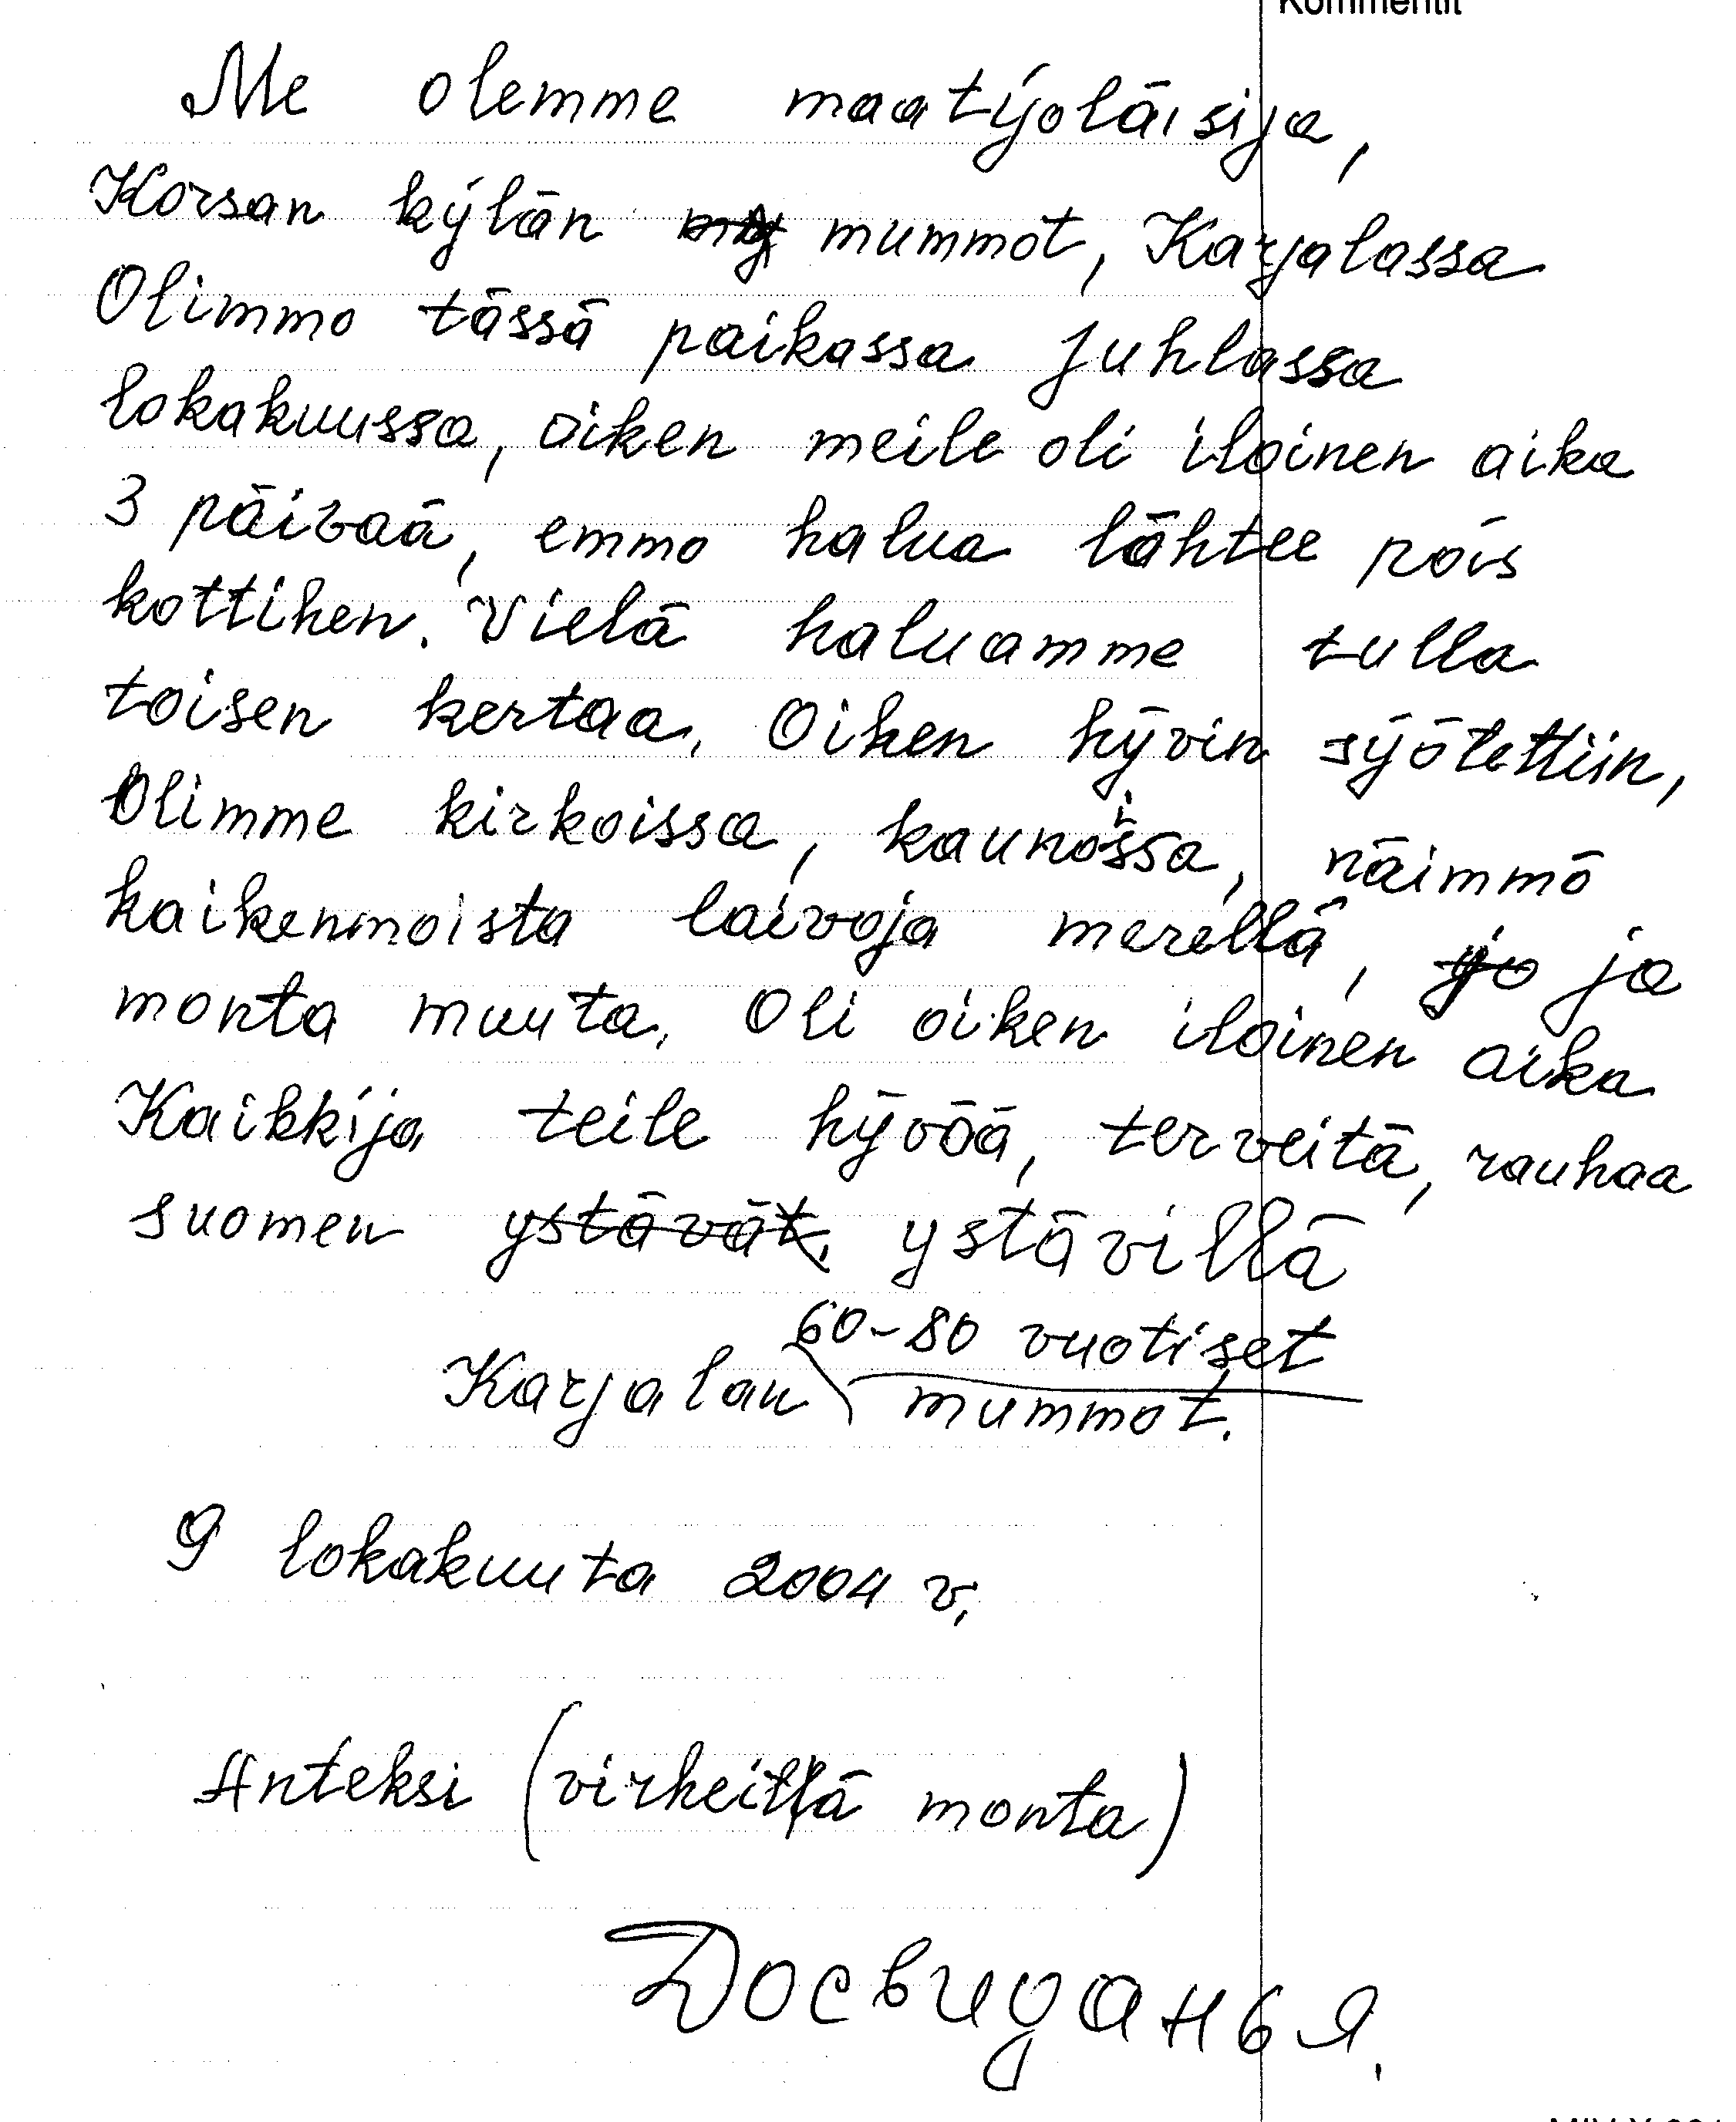 Kommentit
Me olemme maatÿoläisija,
Korsan kÿlän mummot, Karjalassa
Olimmo tässä paikassa juhlassa
lokakuussa, oiken meile oli iloinen aika
3 päivää, emmo halua lähtee pois
kottihen. Vielä haluamme tulla
toisen kertaa. Oiken hÿvin sÿötettiin,
Olimme kirkoissa, kaunoissa, näimmö
kaikenmoista laivoja merellä, jo ja
monta muuta. Oli oiken iloinen aika
Kaikkija teile hÿvöä, terveitä, rauhaa
suomen ystävät. ystävillä
60-80 vuotiset
Karjalan mummot.
9 lokakuuta 2004 v.
Anteksi (virheitä monta)
Досвиданья.